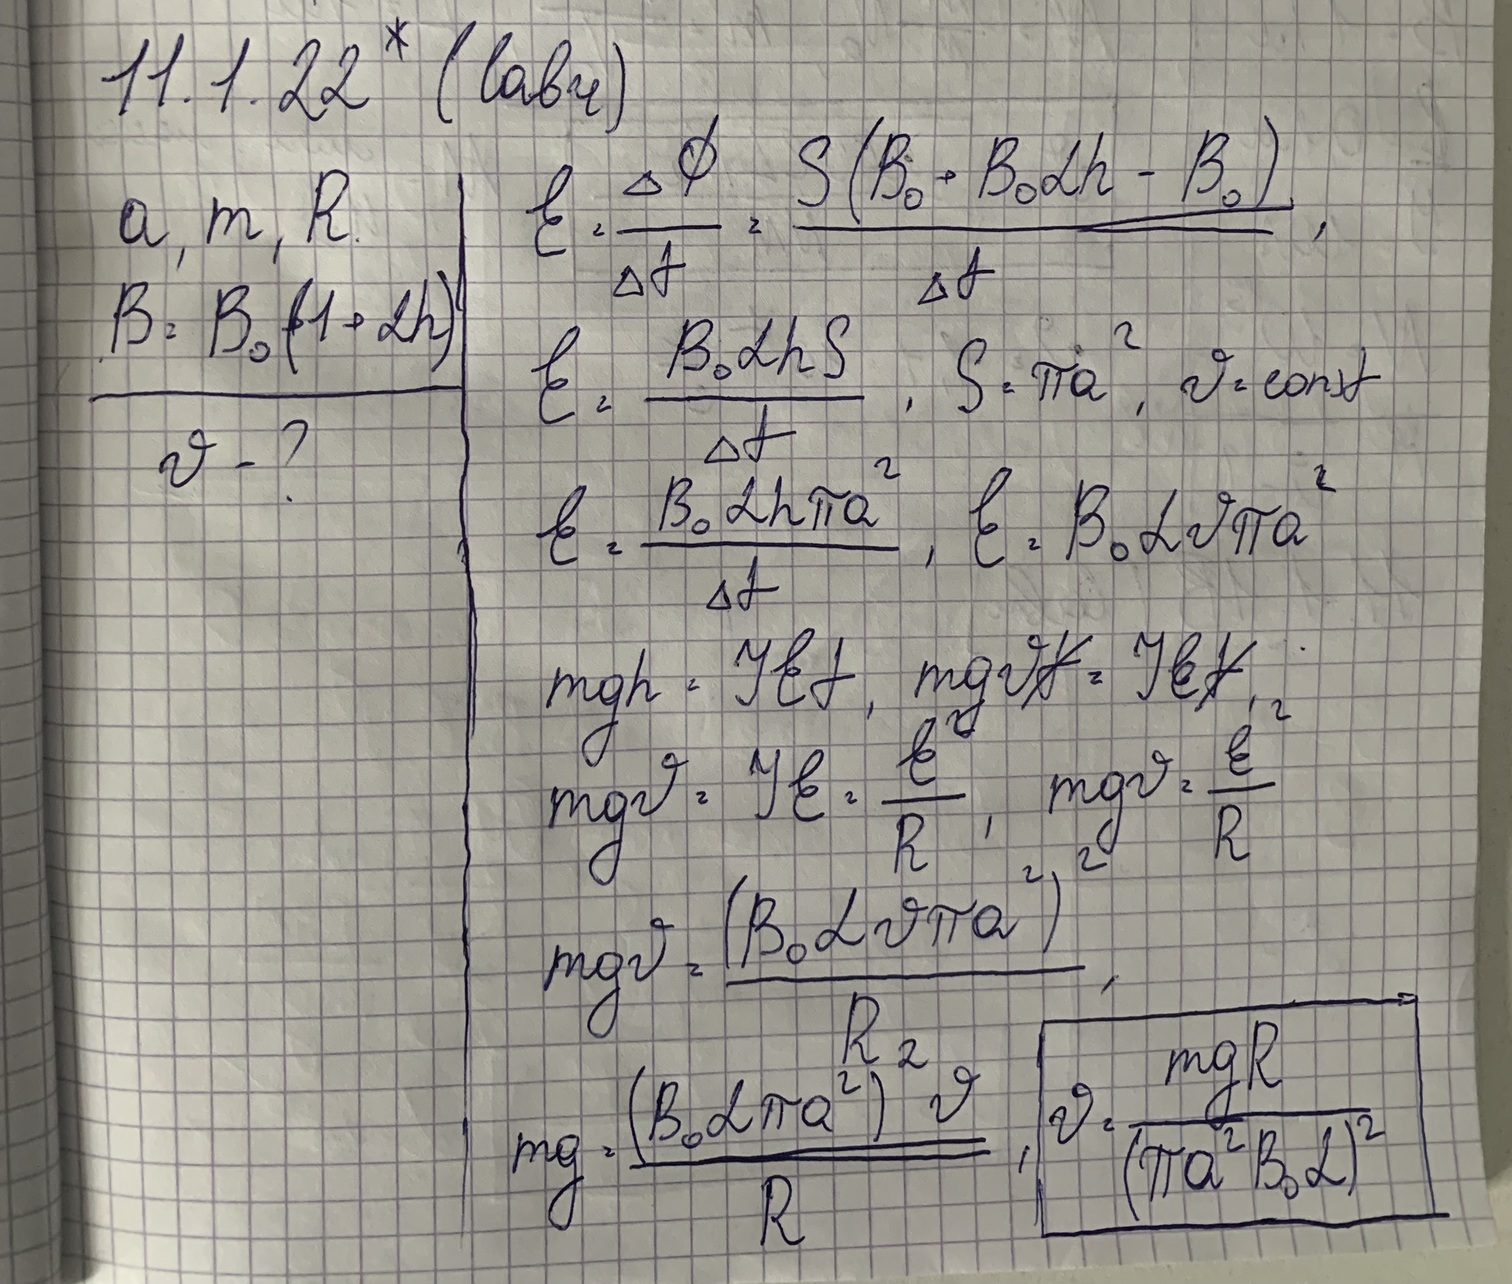 11.1.22* (Савч)
a, m, R.
B = B₀(1 + αh)
v - ?
ℰ = ΔΦ/Δt = S(B₀ + B₀αh - B₀)/Δt,
ℰ = B₀αhS/Δt, S = πa², v = const
ℰ = B₀αhπa²/Δt, ℰ = B₀αvπa²
mgh = Iℰt, mgvt = Iℰt,
mgv = Iℰ = ℰ²/R, mgv = ℰ²/R
mgv = (B₀αvπa²)²/R,
mg = (B₀απa²)²v/R, v = mgR/(πa²B₀α)²